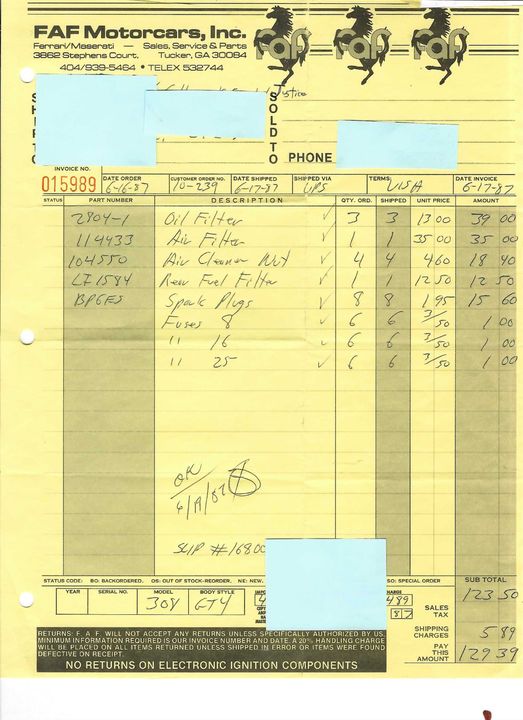 FAF Motorcars, Inc.
Ferrari/Maserati — Sales, Service & Parts
3862 Stephens Court, Tucker, GA 30084
404/939-5464 • TELEX 532744
FAF FAF FAF
SOLD TO
PHONE
INVOICE NO. 015989
DATE ORDER 6-16-87
CUSTOMER ORDER NO. 10-239
DATE SHIPPED 6-17-87
SHIPPED VIA UPS
TERMS VISA
DATE INVOICE 6-17-87
STATUS PART NUMBER DESCRIPTION QTY. ORD. SHIPPED UNIT PRICE AMOUNT
2804-1 Oil Filter ✓ 3 3 13 00 39 00
114433 Air Filter ✓ 1 1 35 00 35 00
104550 Air Cleaner Nut ✓ 4 4 4 60 18 40
Rear Fuel Filter ✓ 1 1 12 50 12 50
BP6ES Spark Plugs ✓ 8 8 1 95 15 60
Fuses 8 ✓ 6 6 3/50 1 00
" 16 ✓ 6 6 3/50 1 00
" 25 ✓ 6 6 3/50 1 00
OK
6/19/87
SLIP #16800
STATUS CODE: BO: BACKORDERED. OS: OUT OF STOCK-REORDER. NE: NEW. SO: SPECIAL ORDER
SUB TOTAL
123 50
YEAR SERIAL NO. MODEL BODY STYLE
308 GT4
489
87
SALES TAX
SHIPPING CHARGES 5 89
PAY THIS AMOUNT 129 39
RETURNS: F. A. F. WILL NOT ACCEPT ANY RETURNS UNLESS SPECIFICALLY AUTHORIZED BY US.
MINIMUM INFORMATION REQUIRED IS OUR INVOICE NUMBER AND DATE. A 20% HANDLING CHARGE
WILL BE PLACED ON ALL ITEMS RETURNED UNLESS SHIPPED IN ERROR OR ITEMS WERE FOUND
DEFECTIVE ON RECEIPT.
NO RETURNS ON ELECTRONIC IGNITION COMPONENTS